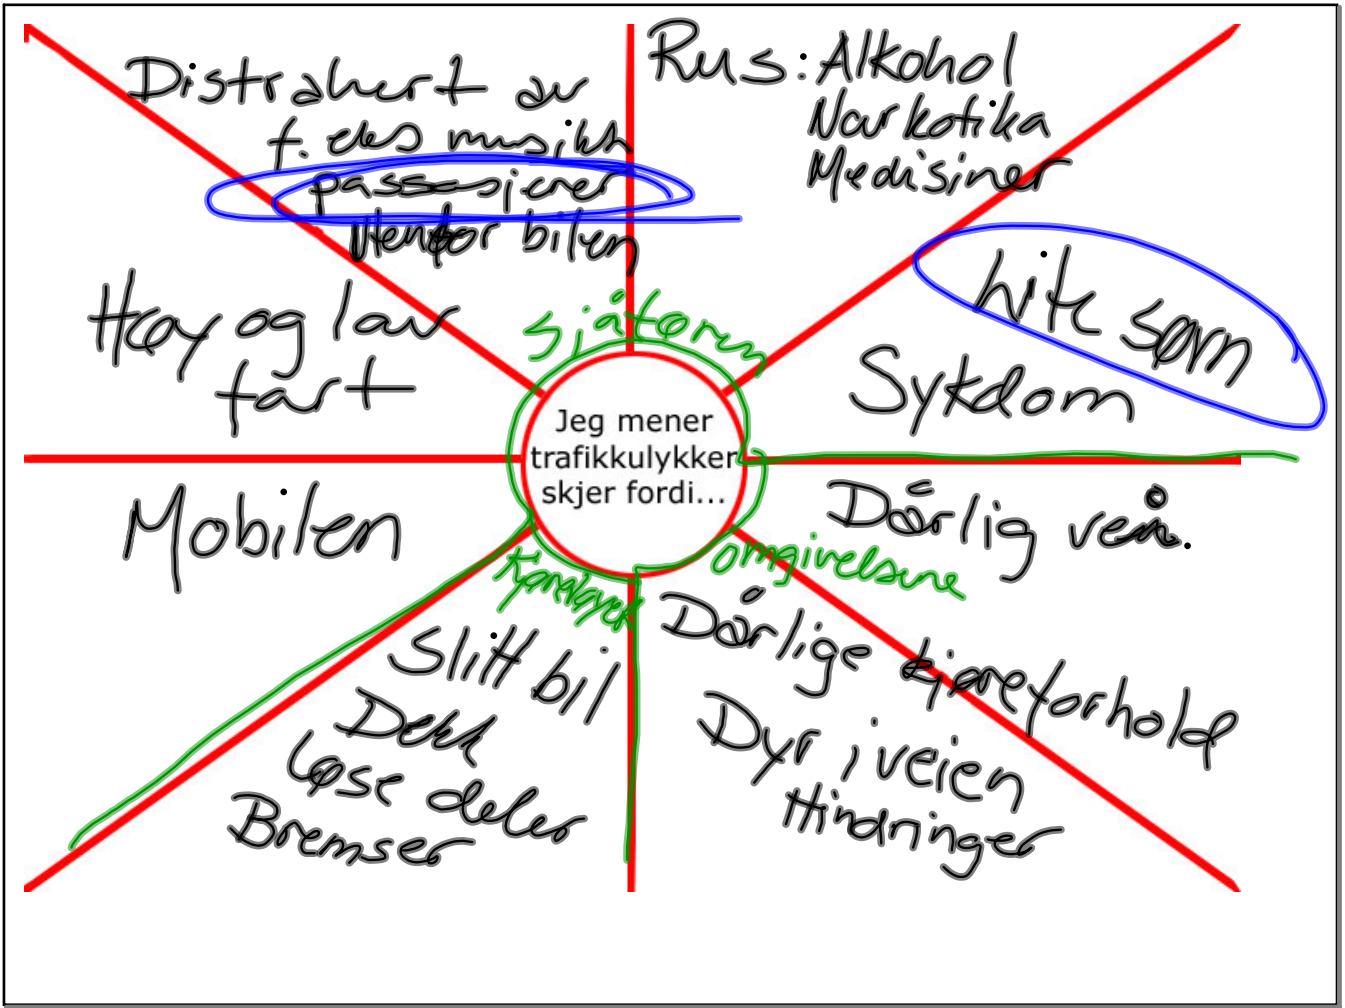 Distrahert av
f. eks musikk
passasjerer
Utenfor bilen
Rus: Alkohol
Narkotika
Medisiner
Lite søvn
Sykdom
Høy og lav
fart
sjåføren
Jeg mener
trafikkulykker
skjer fordi...
Mobilen
Dårlig vei.
omgivelsene
Kjøretøyet
Dårlige kjøreforhold
Dyr i veien
Hindringer
Slitt bil
Dekk
Løse deler
Bremser